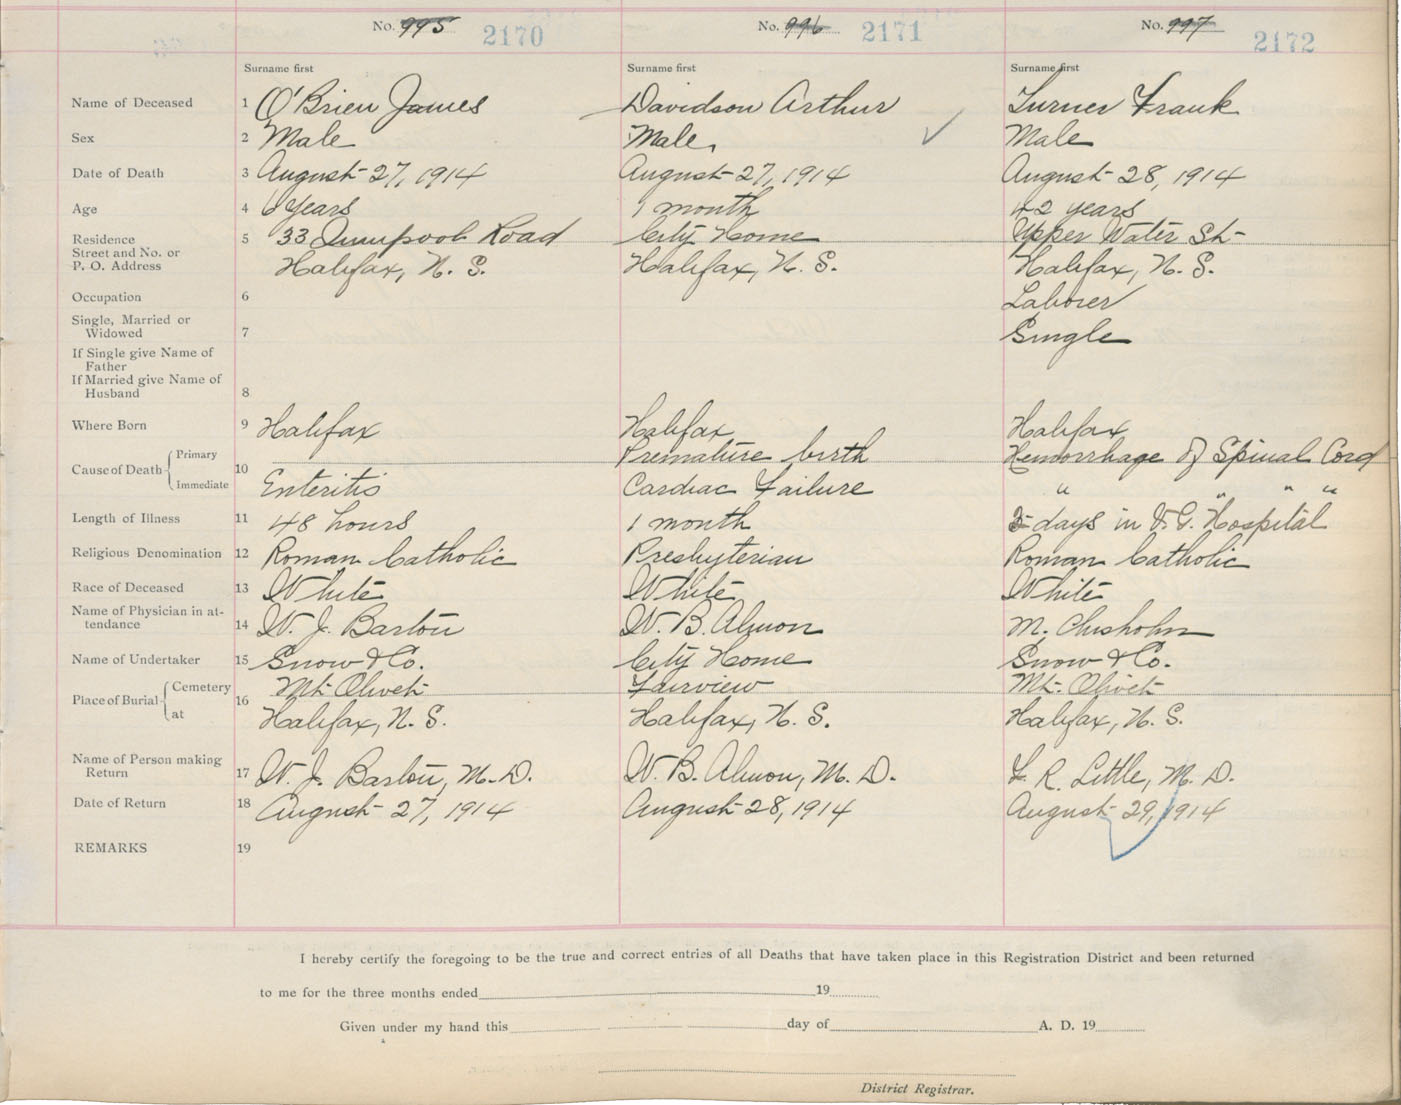 No. 995 2170 No. 996 2171 No. 997 2172
Surname first Surname first Surname first
Name of Deceased 1 O'Brien James Davidson Arthur Turner Frank
Sex 2 Male Male Male
Date of Death 3 August 27, 1914 August 27, 1914 August 28, 1914
Age 4 6 Years 1 month 42 years
Residence 5 33 Quinpool Road City Home Upper Water St
Street and No. or
P. O. Address Halifax, N. S. Halifax, N. S. Halifax, N. S.
Occupation 6 Laborer
Single, Married or
Widowed 7 Single
If Single give Name of
Father
If Married give Name of
Husband 8
Where Born 9 Halifax Halifax Halifax
Cause of Death Primary 10 Premature birth Hemorrhage of Spinal Cord
Immediate Enteritis Cardiac Failure " " " "
Length of Illness 11 48 hours 1 month days in V. G. Hospital
Religious Denomination 12 Roman Catholic Presbyterian Roman Catholic
Race of Deceased 13 White White White
Name of Physician in at-
tendance 14 W. J. Barton W. B. Almon M. Chisholm
Name of Undertaker 15 Snow & Co. City Home Snow & Co.
Place of Burial Cemetery 16 Mt. Olivet Fairview Mt. Olivet
at Halifax, N. S. Halifax, N. S. Halifax, N. S.
Name of Person making
Return 17 W. J. Barton, M. D. W. B. Almon, M. D. F. R. Little, M. D.
Date of Return 18 August 27, 1914 August 28, 1914 August 29, 1914
REMARKS 19
I hereby certify the foregoing to be the true and correct entries of all Deaths that have taken place in this Registration District and been returned
to me for the three months ended 19
Given under my hand this day of A. D. 19
District Registrar.